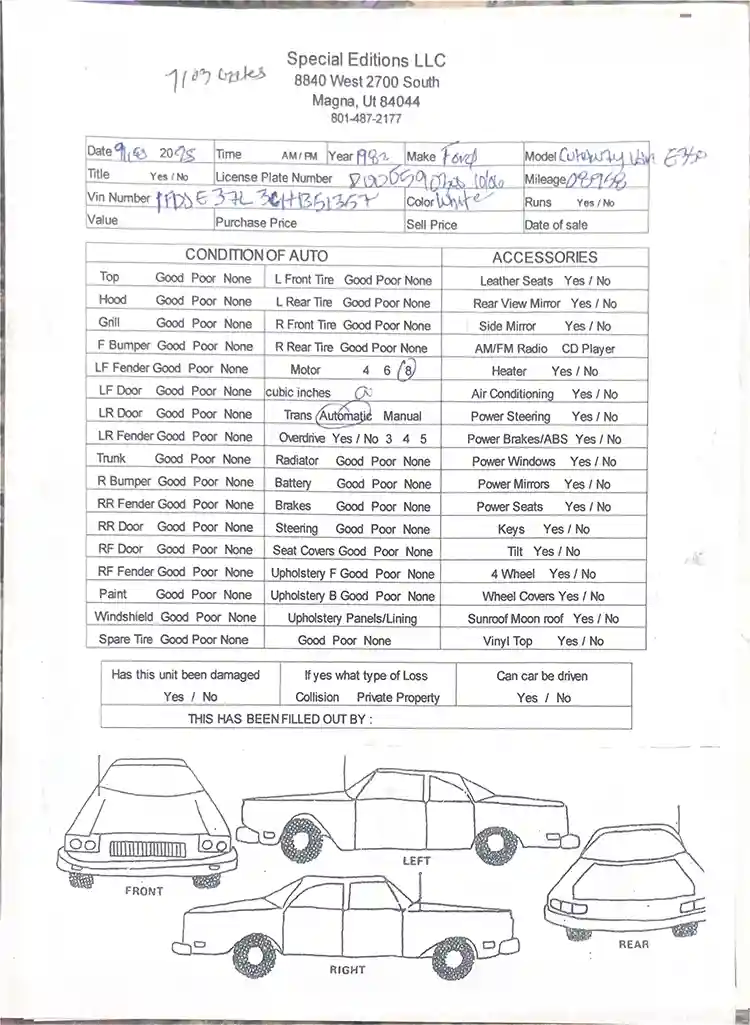 Special Editions LLC
8840 West 2700 South
Magna, Ut 84044
801-487-2177
Date 20 Time AM / PM Year 1982 Make Ford Model Van E350
Title Yes / No License Plate Number Mileage
Vin Number Color White Runs Yes / No
Value Purchase Price Sell Price Date of sale
CONDITION OF AUTO ACCESSORIES
Top Good Poor None L Front Tire Good Poor None Leather Seats Yes / No
Hood Good Poor None L Rear Tire Good Poor None Rear View Mirror Yes / No
Grill Good Poor None R Front Tire Good Poor None Side Mirror Yes / No
F Bumper Good Poor None R Rear Tire Good Poor None AM/FM Radio CD Player
LF Fender Good Poor None Motor 4 6 8 Heater Yes / No
LF Door Good Poor None cubic inches Air Conditioning Yes / No
LR Door Good Poor None Trans Automatic Manual Power Steering Yes / No
LR Fender Good Poor None Overdrive Yes / No 3 4 5 Power Brakes/ABS Yes / No
Trunk Good Poor None Radiator Good Poor None Power Windows Yes / No
R Bumper Good Poor None Battery Good Poor None Power Mirrors Yes / No
RR Fender Good Poor None Brakes Good Poor None Power Seats Yes / No
RR Door Good Poor None Steering Good Poor None Keys Yes / No
RF Door Good Poor None Seat Covers Good Poor None Tilt Yes / No
RF Fender Good Poor None Upholstery F Good Poor None 4 Wheel Yes / No
Paint Good Poor None Upholstery B Good Poor None Wheel Covers Yes / No
Windshield Good Poor None Upholstery Panels/Lining Sunroof Moon roof Yes / No
Spare Tire Good Poor None Good Poor None Vinyl Top Yes / No
Has this unit been damaged If yes what type of Loss Can car be driven
Yes / No Collision Private Property Yes / No
THIS HAS BEEN FILLED OUT BY :
LEFT
FRONT
REAR
RIGHT